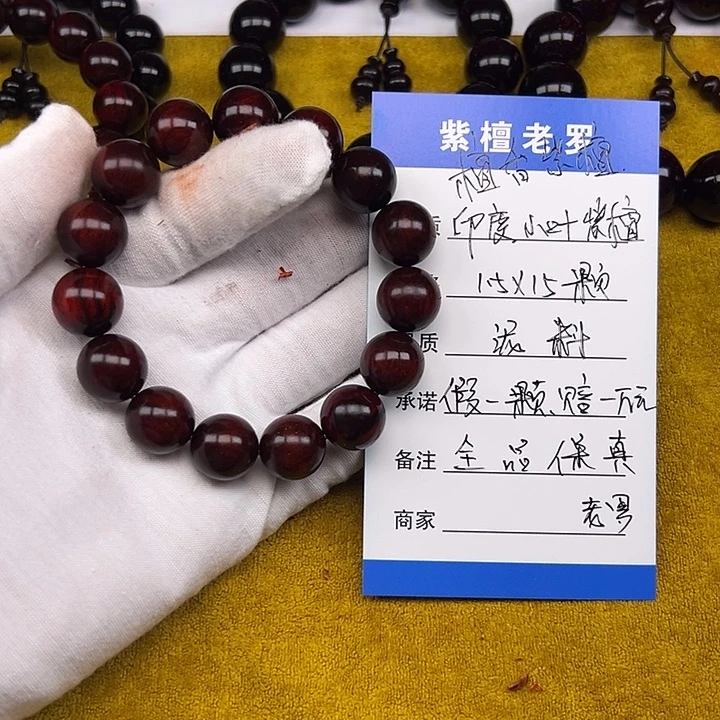 紫檀老罗
植有紫檀
印度小叶紫檀
1.5X15颗
质 泥料
承诺 假一颗赔一万元
备注 全品保真
商家 老罗